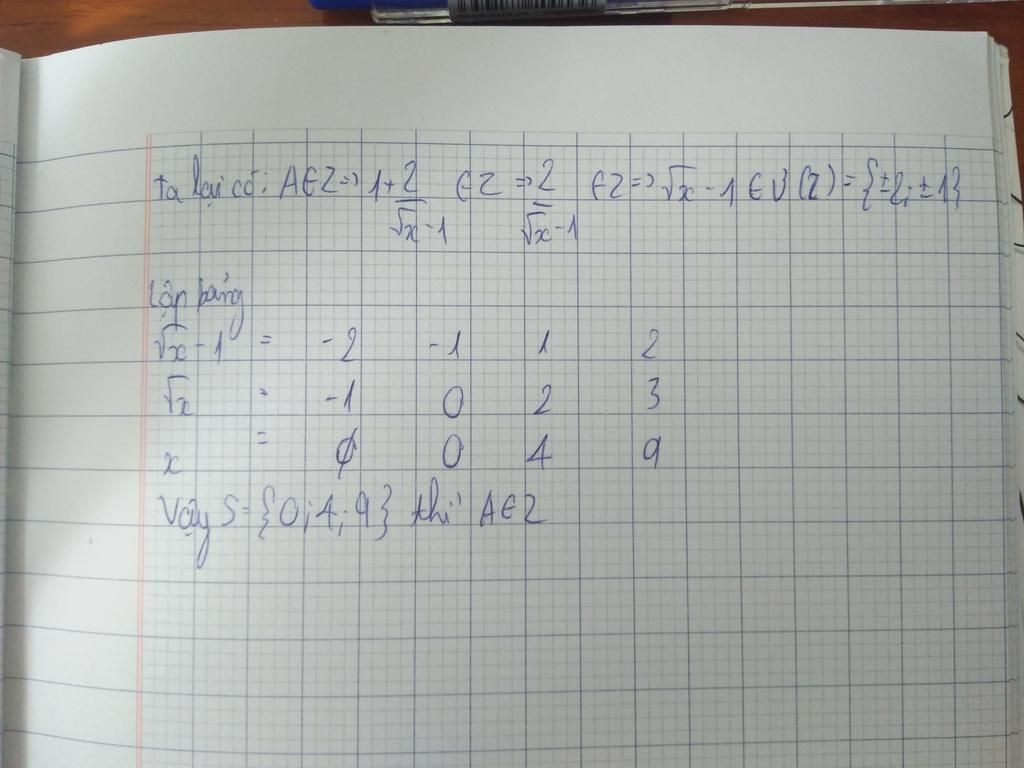 Ta lại có: A∈Z => 1 + 2/(√x - 1) ∈ Z => 2/(√x - 1) ∈ Z => √x - 1 ∈ Ư(2) = {±2; ±1}
Lập bảng
√x - 1 = -2 -1 1 2
√x = -1 0 2 3
x = ∅ 0 4 9
Vậy S = {0; 4; 9} thì A∈Z